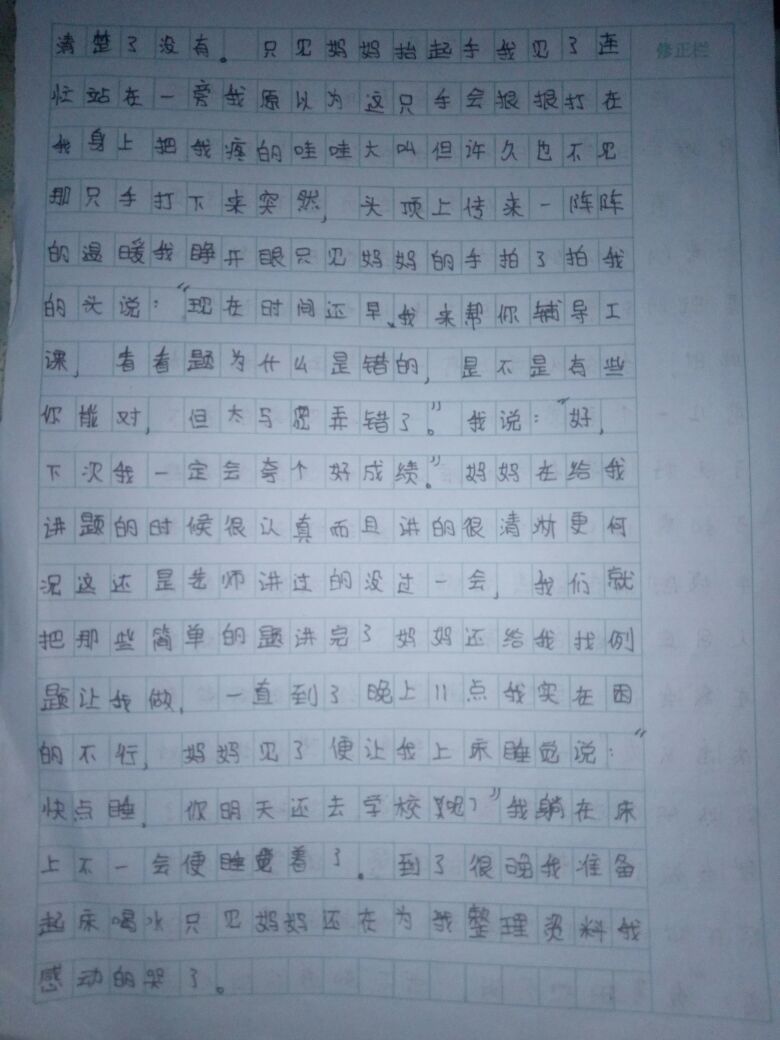 清楚了没有。只见妈妈抬起手我见了连
修正栏
忙站在一旁我原以为这只手会狠狠打在
我身上把我疼的哇哇大叫但许久也不见
那只手打下来突然，头顶上传来一阵阵
的温暖我睁开眼只见妈妈的手拍了拍我
的头说："现在时间还早、我来帮你辅导工
课，看看题为什么是错的，是不是有些
你能对，但太马虎弄错了。"我说："好，
下次我一定会夸个好成绩。"妈妈在给我
讲题的时候很认真而且讲的很清淅更何
况这还是老师讲过的没过一会，我们就
把那些简单的题讲完了妈妈还给我找例
题让我做，一直到了晚上11点我实在困
的不行，妈妈见了便让我上床睡觉说："
快点睡，你明天还去学校呢?"我躺在床
上不一会便睡着了。到了很晚我准备
起床喝水只见妈妈还在为我整理资料我
感动的哭了。